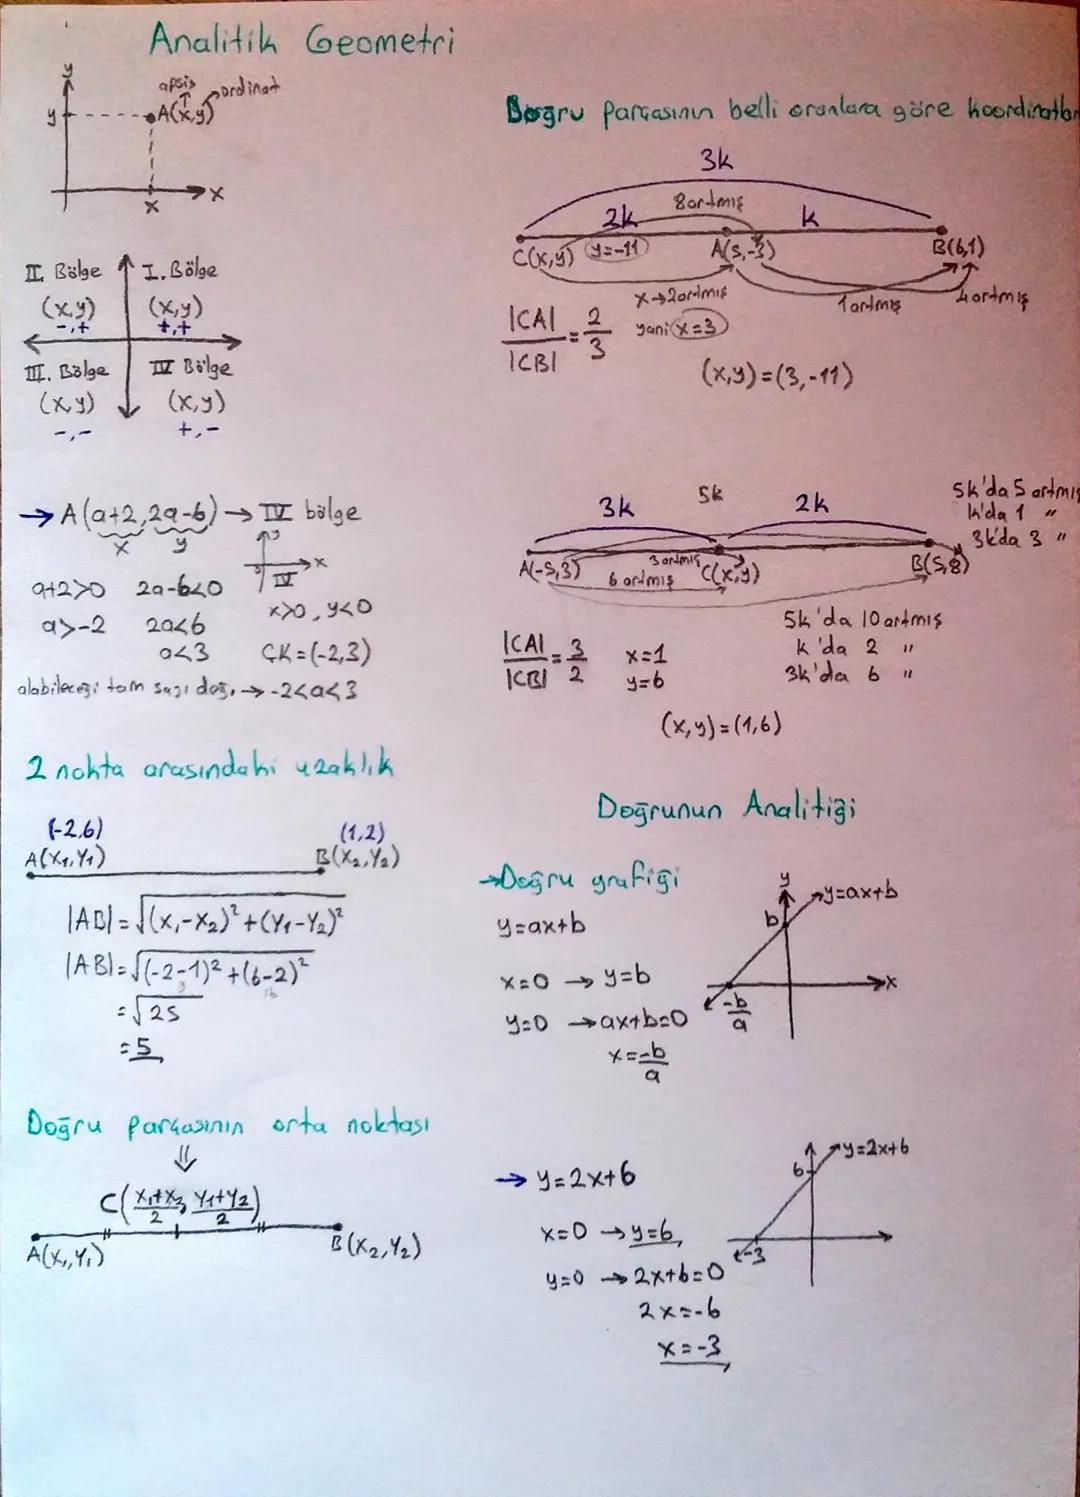 Analitik Geometri
y
apsis
ordinat
y
A(x,y)
x
x
II. Bölge
I. Bölge
(x,y)
(x,y)
-,+
+,+
III. Bölge
IV Bölge
(x,y)
(x,y)
-,-
+,-
→ A(a+2, 2a-6) → IV bölge
x
y
y
x
IV
a+2>0
2a-6<0
x>0, y<0
a>-2
2a<6
a<3
ÇK=(-2,3)
alabileceği tam sayı değ. → -2<a<3
2 nokta arasındaki uzaklık
(-2,6)
(1,2)
A(x₁,y₁)
B(x₂,y₂)
|AB|=√(x₁-x₂)²+(y₁-y₂)²
|AB|=√(-2-1)²+(6-2)²
16
=√25
=5
Doğru parçasının orta noktası
⇓
C(x₁+x₂/2, y₁+y₂/2)
A(x₁,y₁)
B(x₂,y₂)
Doğru parçasının belli oranlara göre koordinatları
3k
8 artmış
2k
k
C(x,y)
y=-11
A(5,-3)
B(6,1)
x→2 artmış
1 artmış
4 artmış
|CA|/|CB|=2/3
yani x=3
(x,y)=(3,-11)
3k
5k
2k
5k'da 5 artmış
k'da 1 "
3k'da 3 "
A(-5,3)
3 artmış
6 artmış
C(x,y)
B(5,8)
5k'da 10 artmış
k'da 2 "
3k'da 6 "
|CA|/|CB|=3/2
x=1
y=6
(x,y)=(1,6)
Doğrunun Analitiği
→Doğru grafiği
y
y=ax+b
y=ax+b
b
x=0 → y=b
x
-b/a
y=0 → ax+b=0
x=-b/a
→ y=2x+6
y=2x+6
6
x=0 → y=6
-3
y=0 → 2x+6=0
2x=-6
x=-3